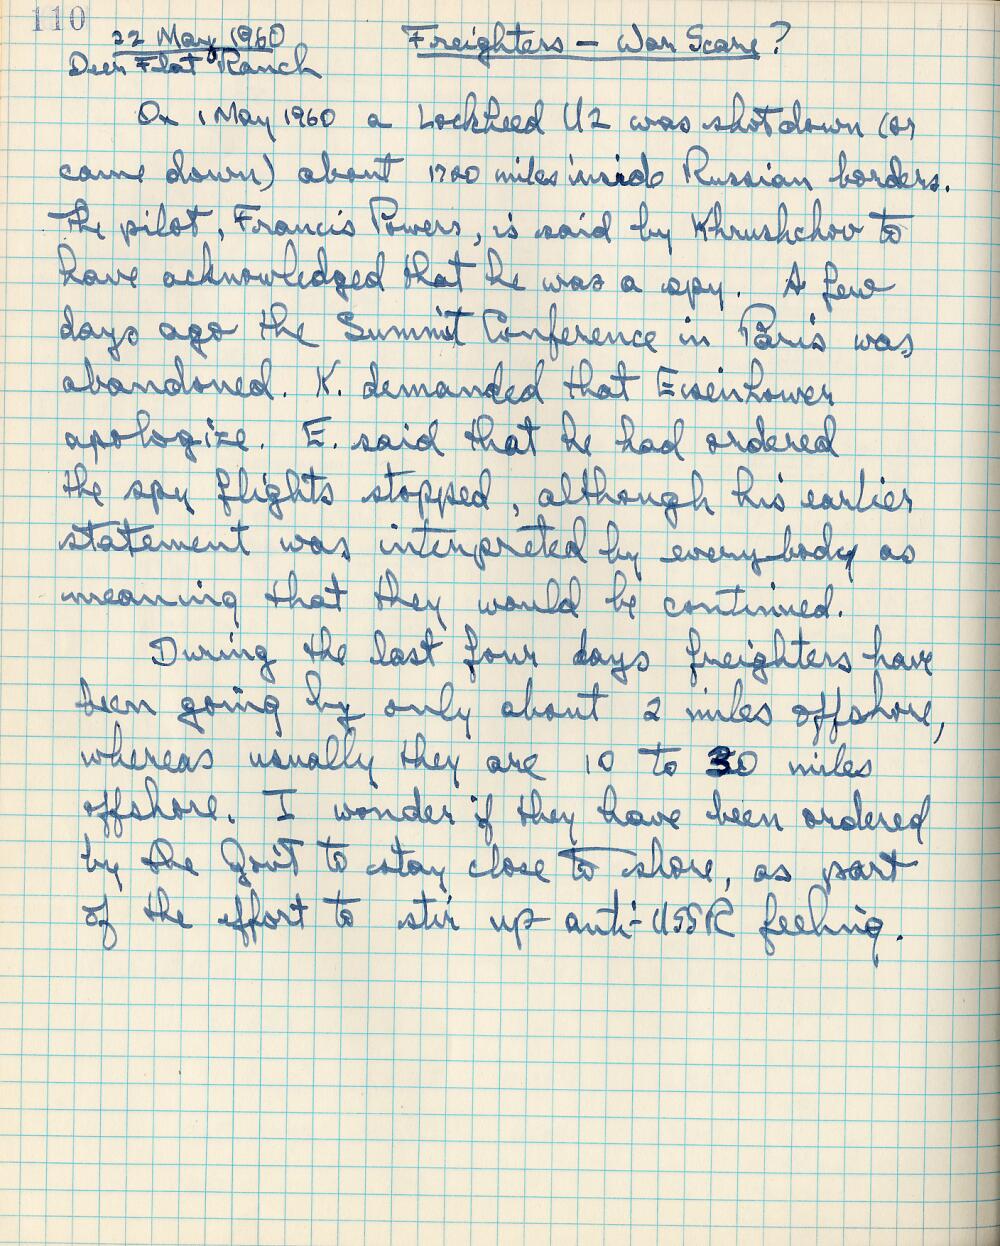 110
22 May 1960
Freighters — War Scare?
Deer Flat Ranch
On 1 May 1960 a Lockheed U2 was shot down (or
came down) about 1200 miles inside Russian borders.
The pilot, Francis Powers, is said by Khrushchov to
have acknowledged that he was a spy. A few
days ago the Summit Conference in Paris was
abandoned. K. demanded that Eisenhower
apologize. E. said that he had ordered
the spy flights stopped, although his earlier
statement was interpreted by everybody as
meaning that they would be continued.
During the last four days freighters have
been going by only about 2 miles offshore,
whereas usually they are 10 to 30 miles
offshore. I wonder if they have been ordered
by the Gov't to stay close to shore, as part
of the effort to stir up anti-USSR feeling.